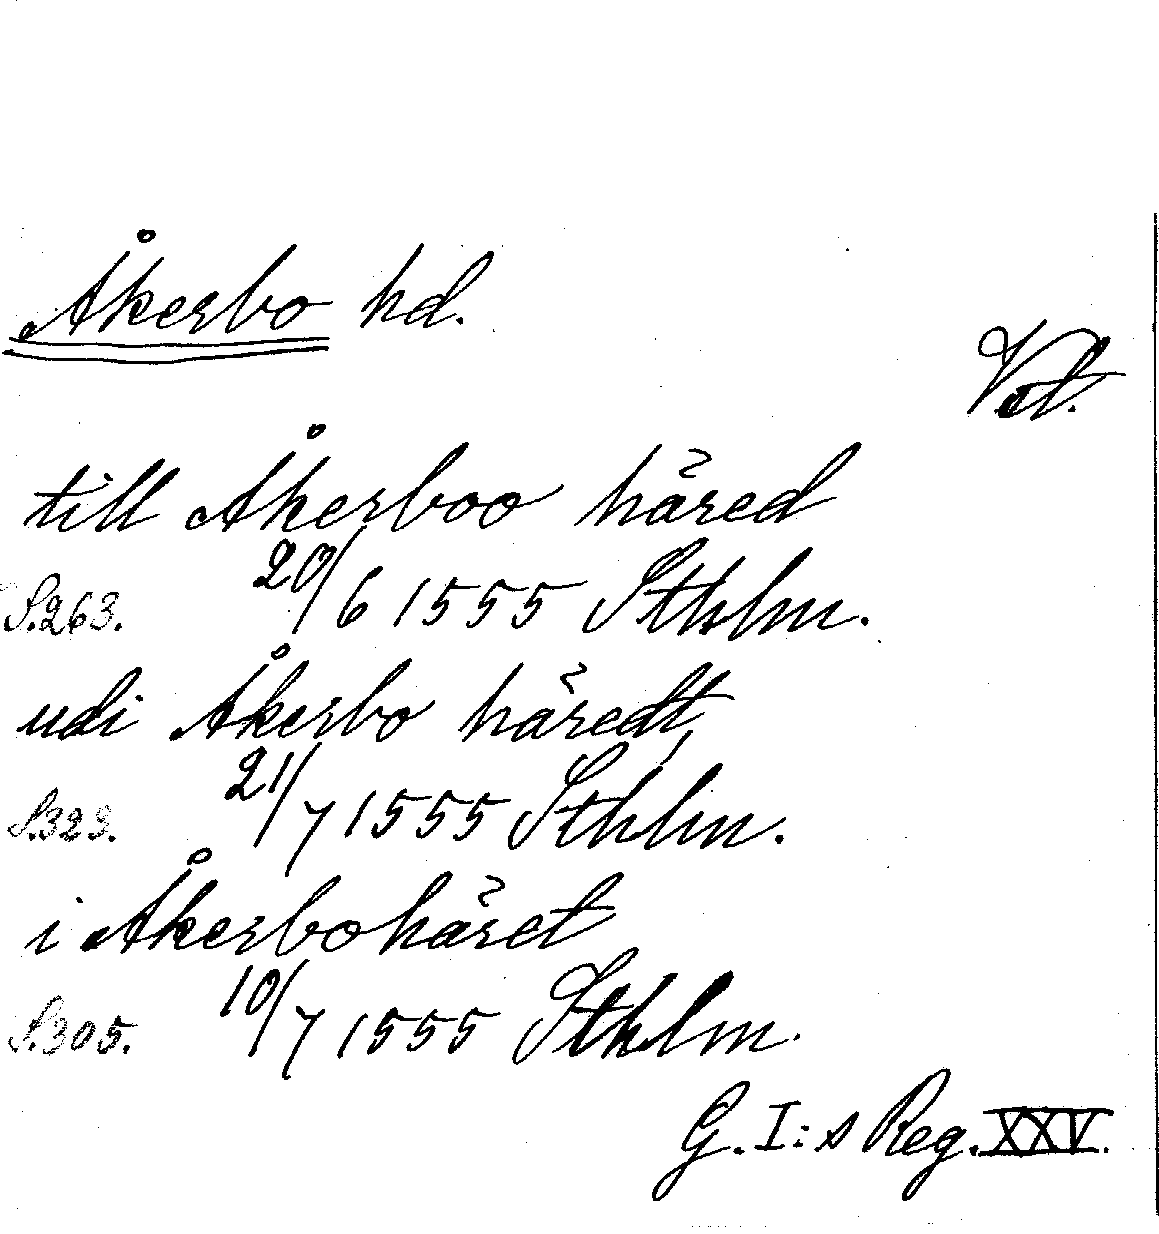 Åkerbo hd.
Vstm.
till Åkerboo håred
S. 263. 20/6 1555 Sthlm.
udi Åkerbo håredt,
S. 323. 21/7 1555 Sthlm.
i Åkerbohåret
S. 305. 10/7 1555 Sthlm.
G. I:s Reg. XXV.